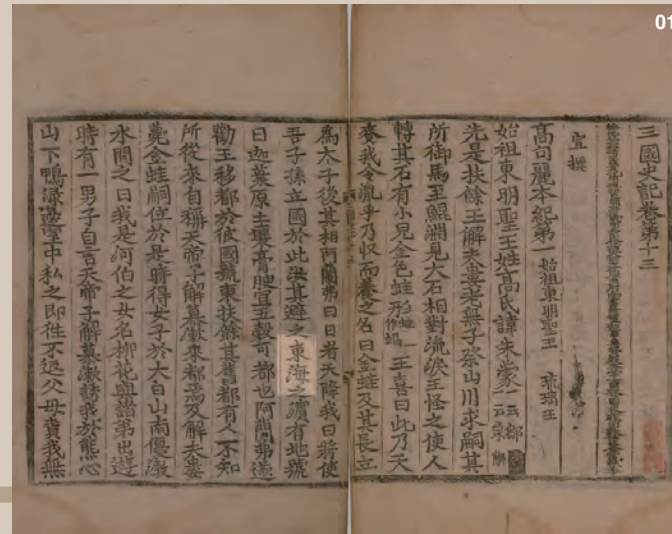 01
三國史記卷第十三
宣撰
高句麗本紀第一 始祖東明聖王 琉璃王
始祖東明聖王姓高氏諱朱蒙一云鄒一云衆解
先是扶餘王解夫婁老無子祭山川求嗣其
所御馬至鯤淵見大石相對流淚王恠之使人
轉其石有小兒金色蛙形蛙一作蝸王喜曰此乃天
賚我令胤乎乃收而養之名曰金蛙及其長立
爲太子後其相阿蘭弗曰日者天降我曰將使
吾子孫立國於此汝其避之東海之濱有地號
曰迦葉原土壤膏腴宜五穀可都也阿蘭弗遂
勸王移都於彼國號東扶餘其舊都有人不知
所從來自稱天帝子解慕漱來都焉及解夫婁
薨金蛙嗣位於是時得女子於大白山南優渤
水問之曰我是河伯之女名柳花與諸弟出遊
時有一男子自言天帝子解慕漱誘我於熊心
山下鴨渌邊室中私之即往不返父母責我無